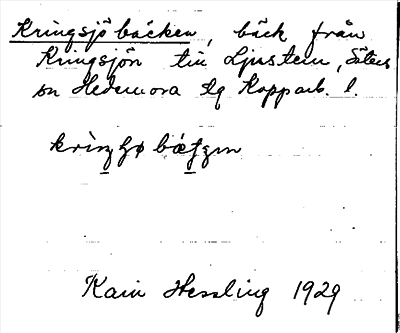 Kringsjöbäcken, bäck från
Kringsjön till Ljustern, Säters
sn Hedemora tg Kopparb. l.
Karin Hessling 1929